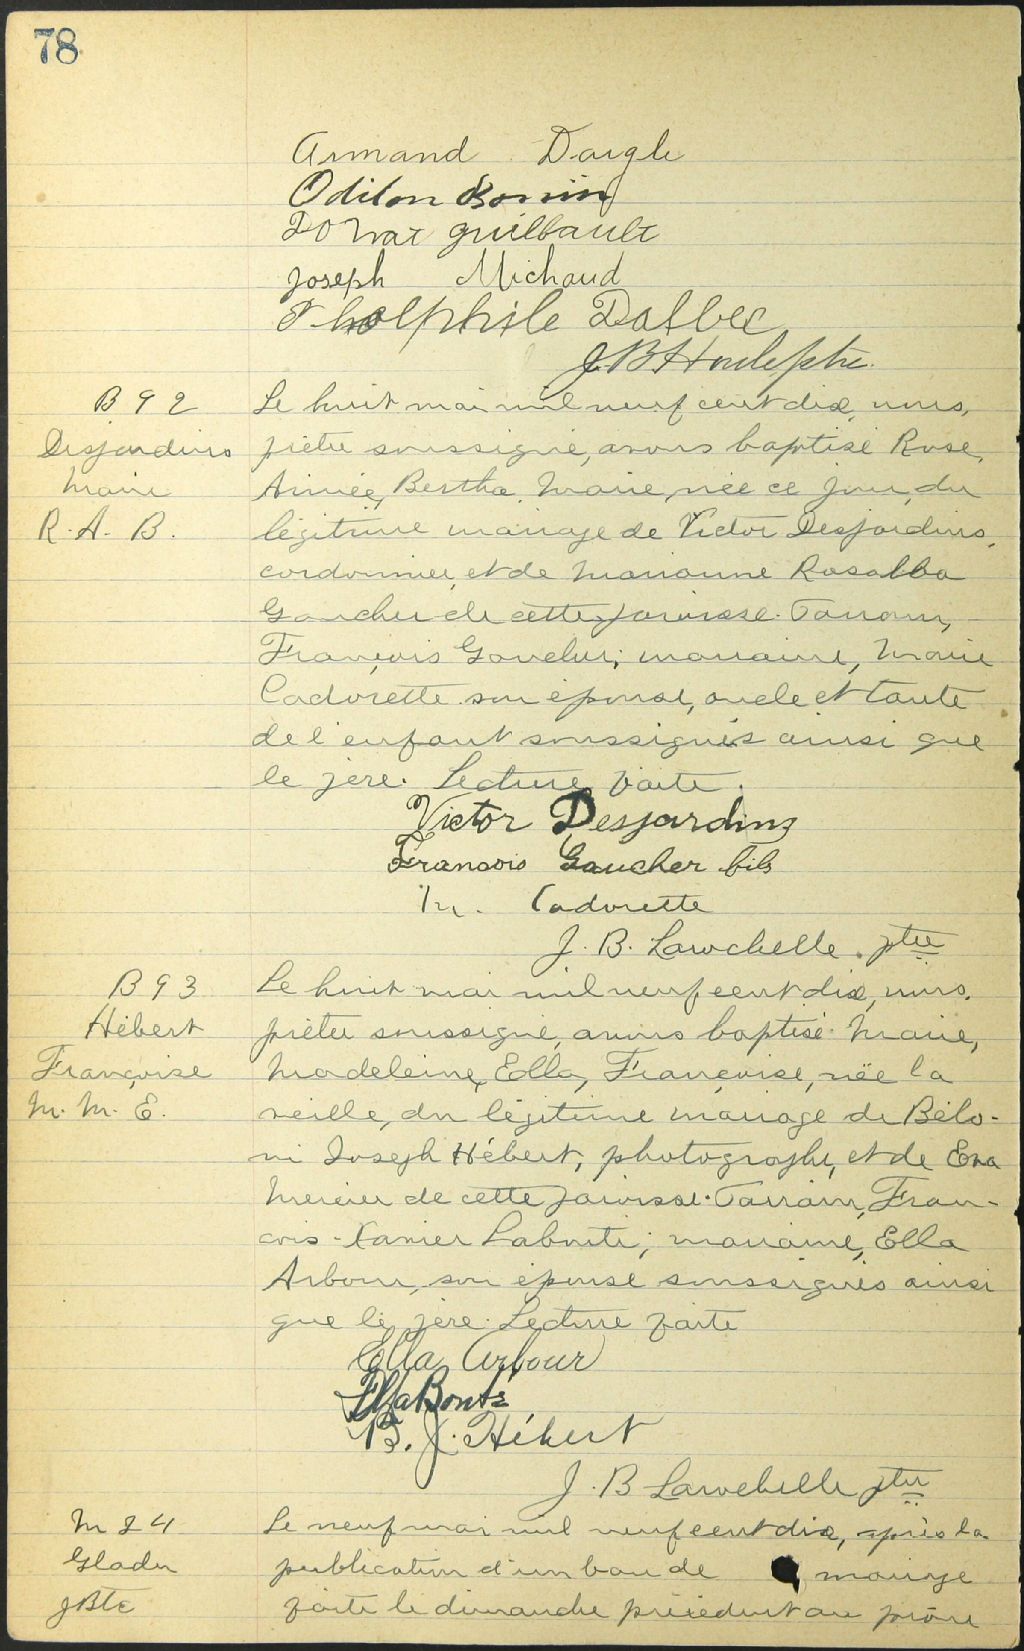 78
Armand Daigle
Odilon Bonin
Donat guilbault
Joseph Michaud
Tholphile Dalbec
J B H ptre.
B 92
Desjardins
Marie
R. A. B.
Le huit mai mil neuf cent dix, nous,
prêtre soussigné, avons baptisé Rose,
Aimée, Bertha, Marie, née ce jour, du
légitime mariage de Victor Desjardins,
cordonnier, et de Marianne Rosalba
Gaucher de cette paroisse. Parrain,
François Gaucher; marraine, Marie
Cadorette son épouse, oncle et tante
de l'enfant soussignés ainsi que
le père. Lecture faite.
Victor Desjardins
Francois Gaucher fils
M. Cadorette
J. B. Larochelle, ptre
B 93
Hébert
Françoise
M. M. E.
Le huit mai mil neuf cent dix, nous,
prêtre soussigné, avons baptisé Marie,
Madeleine, Ella, Françoise, née la
veille, du légitime mariage de Bélo-
ni Joseph Hébert, photographe, et de Eva
Mercier de cette paroisse. Parrain, Fran-
çois-Xavier Labonté; marraine, Ella
Arbour, son épouse soussignés ainsi
que le père. Lecture faite
Ella Arbour
LaBonté
B. J. Hébert
J. B Larochelle ptre
M 24
Gladu
JBte
Le neuf mai mil neuf cent dix, après la
publication d'un ban de mariage
faite le dimanche précédent au prône